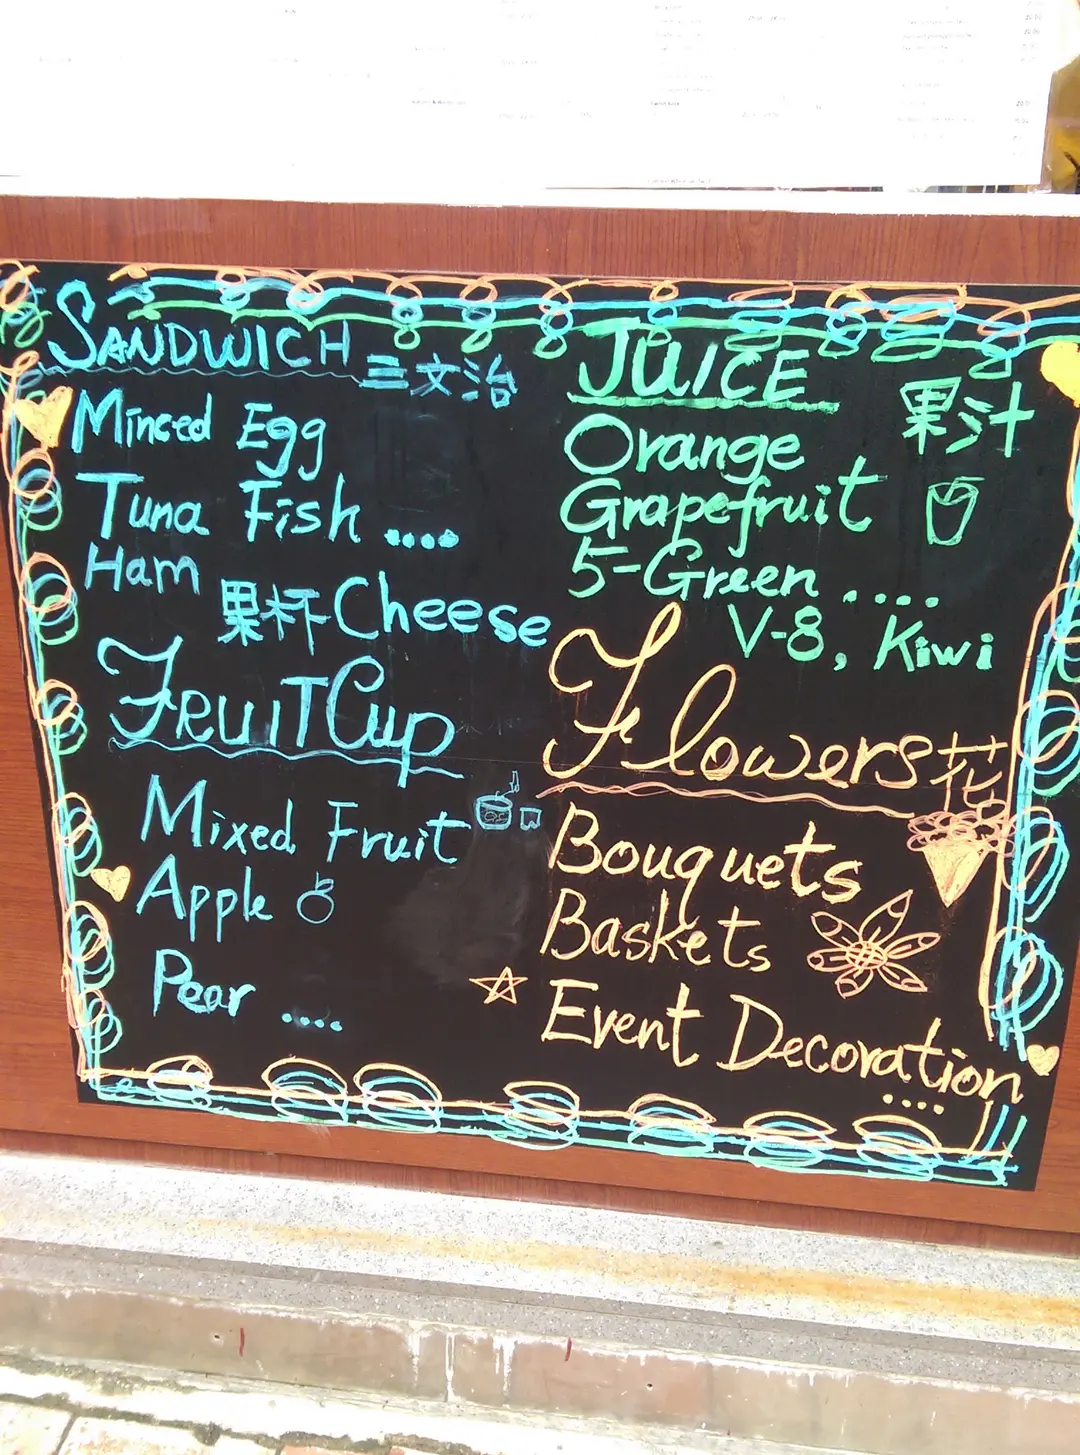 SANDWICH 三文治
Minced Egg
Tuna Fish ....
Ham
Cheese
果杯
FRUIT Cup
Mixed Fruit
Apple
Pear ....
JUICE
果汁
Orange
Grapefruit
5-Green ....
V-8, Kiwi
Flowers 花
Bouquets
Baskets
Event Decoration
....